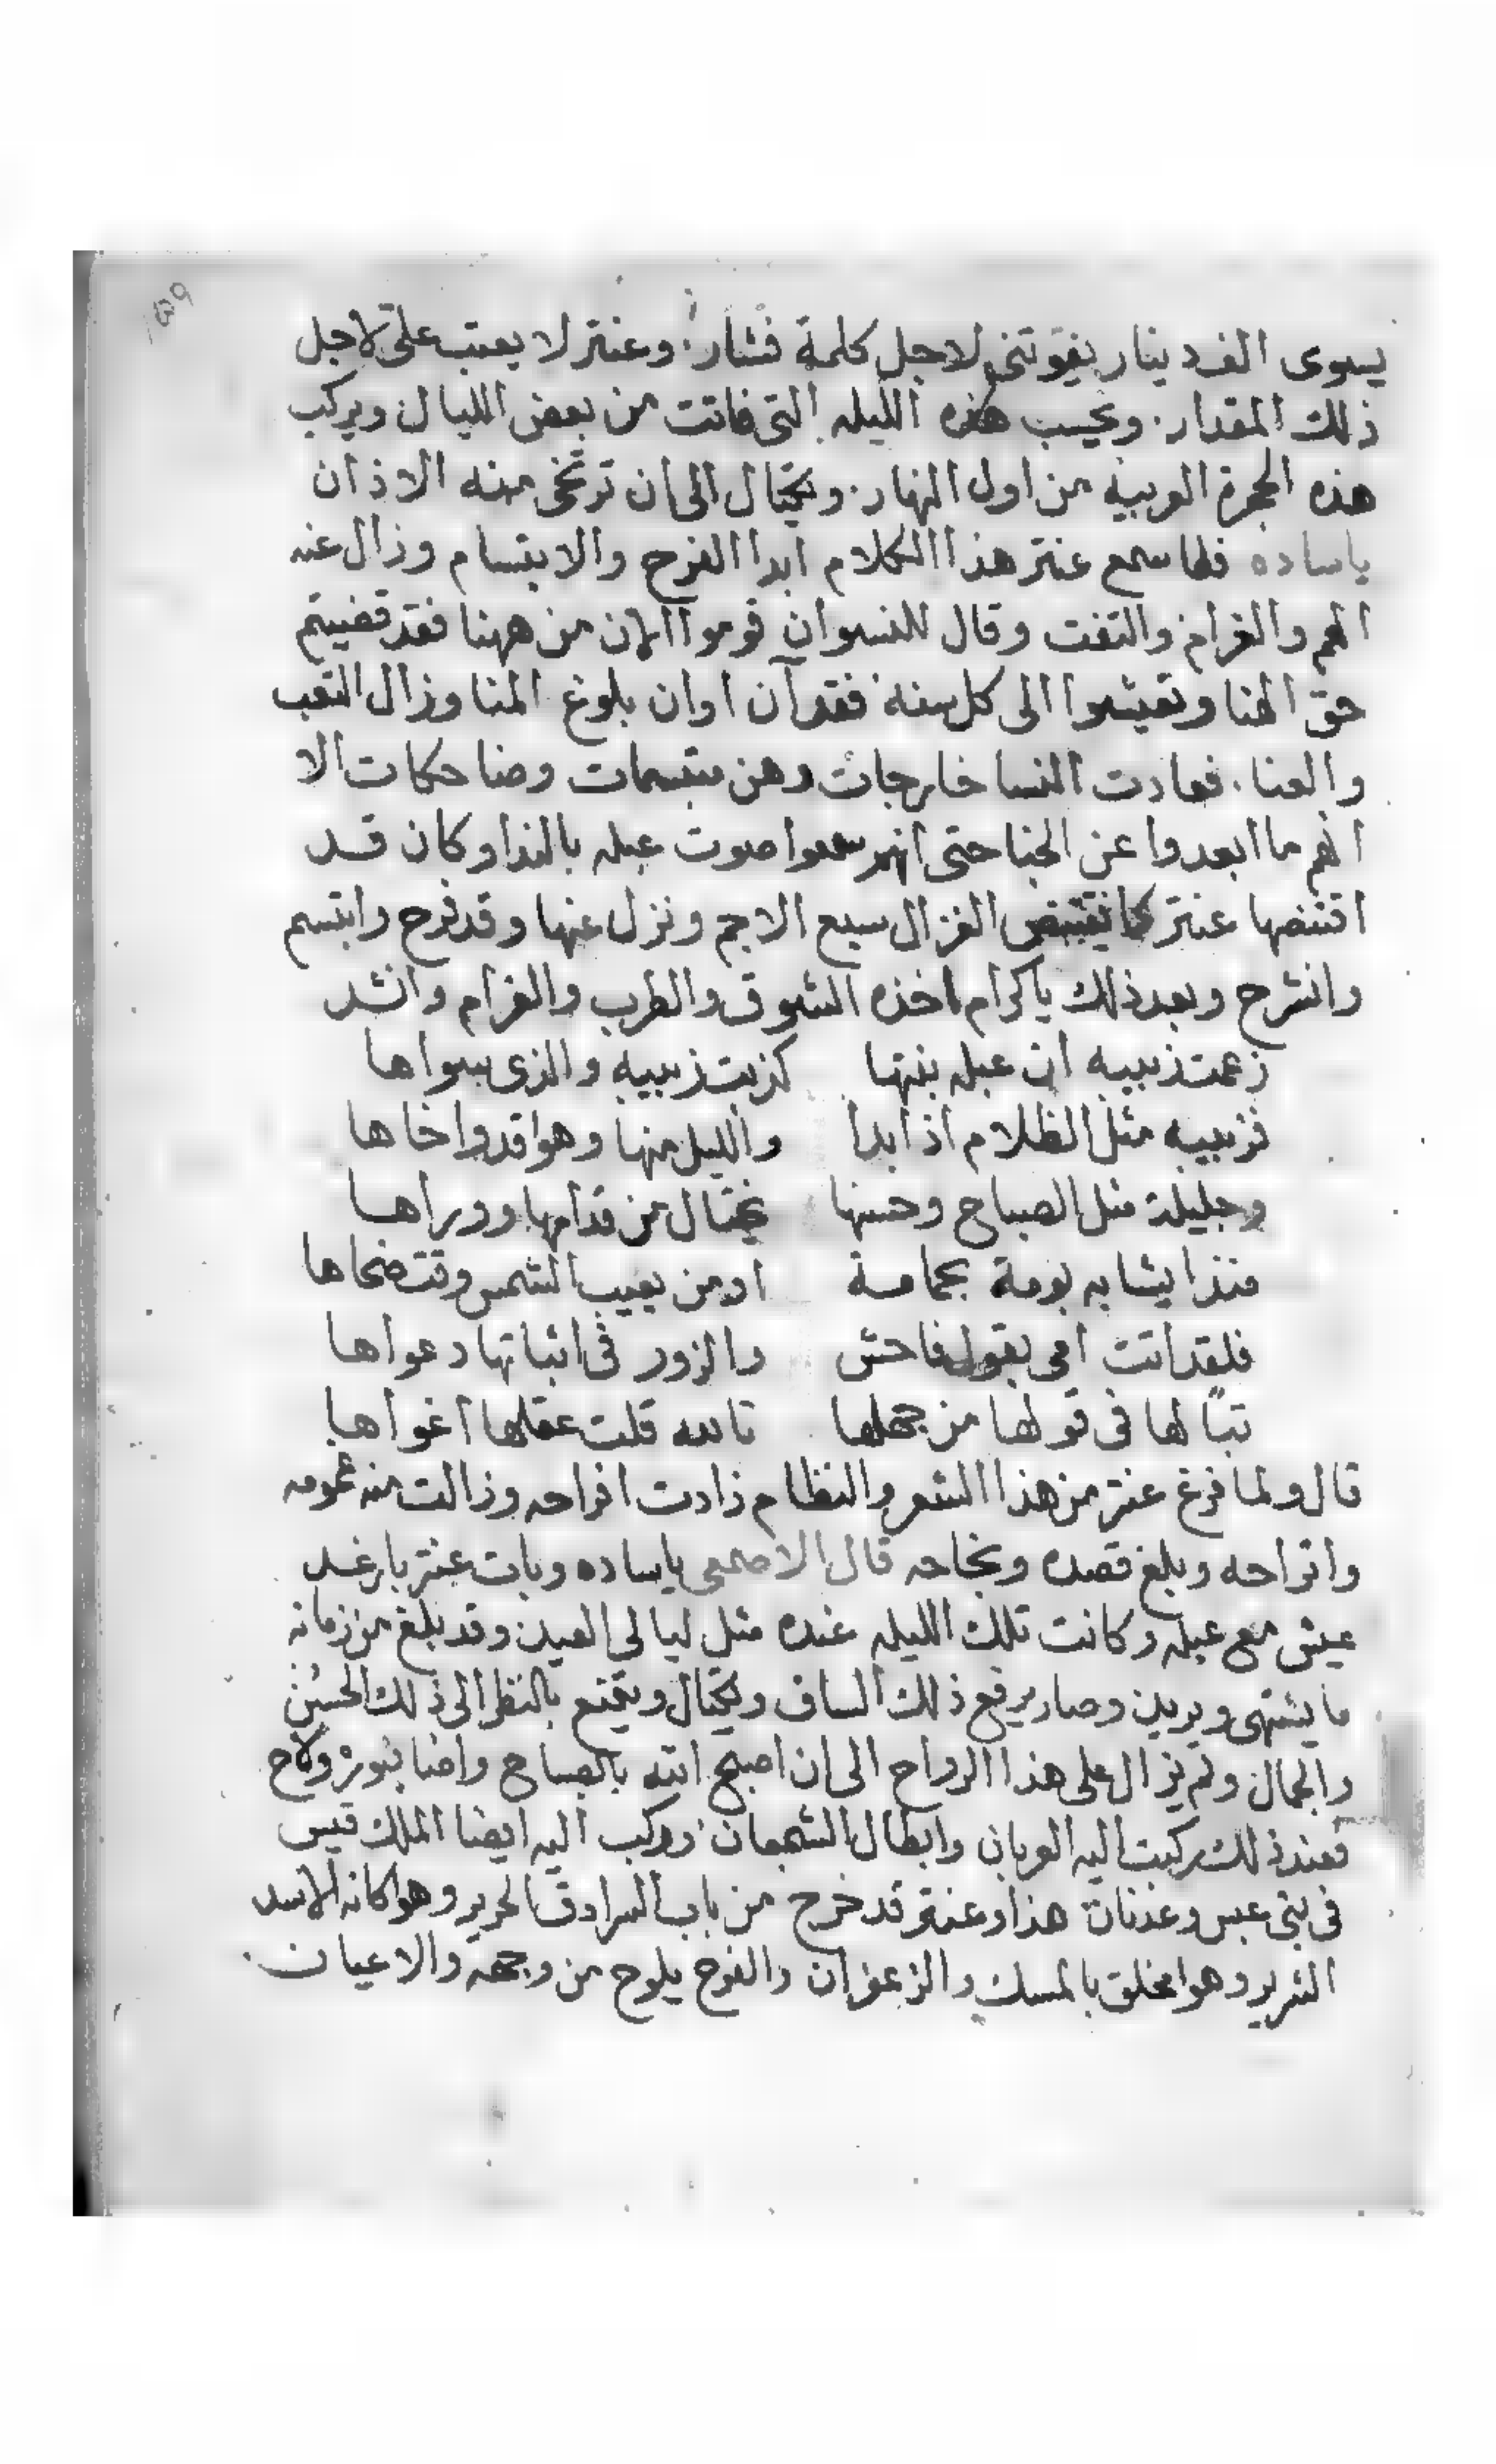 يسوى الف دينار يفوتني لاجل كلمة فشار. وعنتر لا يعتب على لاجل
ذلك المقدار. ويحسب هذه الليله التى فاتت من بعض الليال ويركب
هذه الحجرة العربيه من اول النهار. ويحتال الى ان ترتخى منه الاذان
ياساده فلما سمع عنتر هذا الكلام ابدا الفرح والابتسام وزال عنه
الهم والغرام والتفت وقال للنسوان قوموا الان من ههنا فقد قضيتم
حق الهنا وتعيشوا الى كل سنه فقد آن اوان بلوغ المنا وزال التعب
والعنا. فعادت النسا خارجات وهن متبسمات وضاحكات الا
انهم ما ابعدوا عن الخبا حتى انهم سمعوا صوت عبله بالندا وكان قد
اقتنصها عنتر كما يقتنص الغزال سبع الاجم ونزل عنها وقد فرح وابتسم
وانشرح وبعد ذلك ياكرام اخذه الشوق والطرب والغرام وانشد
زعمت زبيبه ان عبله بنتها كذبت زبيبه والذى سواها
فزبيبه مثل الظلام اذا بدا والليل منها وهوا قد واخاها
وجليلة مثل الصباح وحسنها يختال من قدامها ووراها
منذا يشابه بومة بحمامة او من يعيب الشمس وقت ضحاها
فلقد اتت امى بقول فاحش والزور فى اثباتها دعواها
تبًا لها فى قولها من جهلها تالله قلت عقلها اغواها
قال ولما فرغ عنتر من هذا الشعر والنظام زادت افراحه وزالت منه غمومه
واتراحه وبلغ قصده ونجاحه قال الاصمعى ياساده وبات عنتر بارغد
عيش مع عبله وكانت تلك الليله عنده مثل ليالى العيد وقد بلغ من زمانه
ما يشتهى ويريد وصار يرفع ذلك الساق ويختال ويتمتع بالنظر الى ذلك الحسن
والجمال ولم يزال على هذا الرواح الى ان اصبح الله بالصباح واضا بنوره ولاح
فعند ذلك ركبت اليه العربان وابطال الشجعان. وركب اليه ايضا الملك قيس
فى بنى عبس وعدنان هذا وعنتر قد خرج من باب السرادق الحرير وهوا كانه الاسد
الشرير وهوا مخلق بالمسك والزعفران والفرح يلوح من وجهه والاعيان.